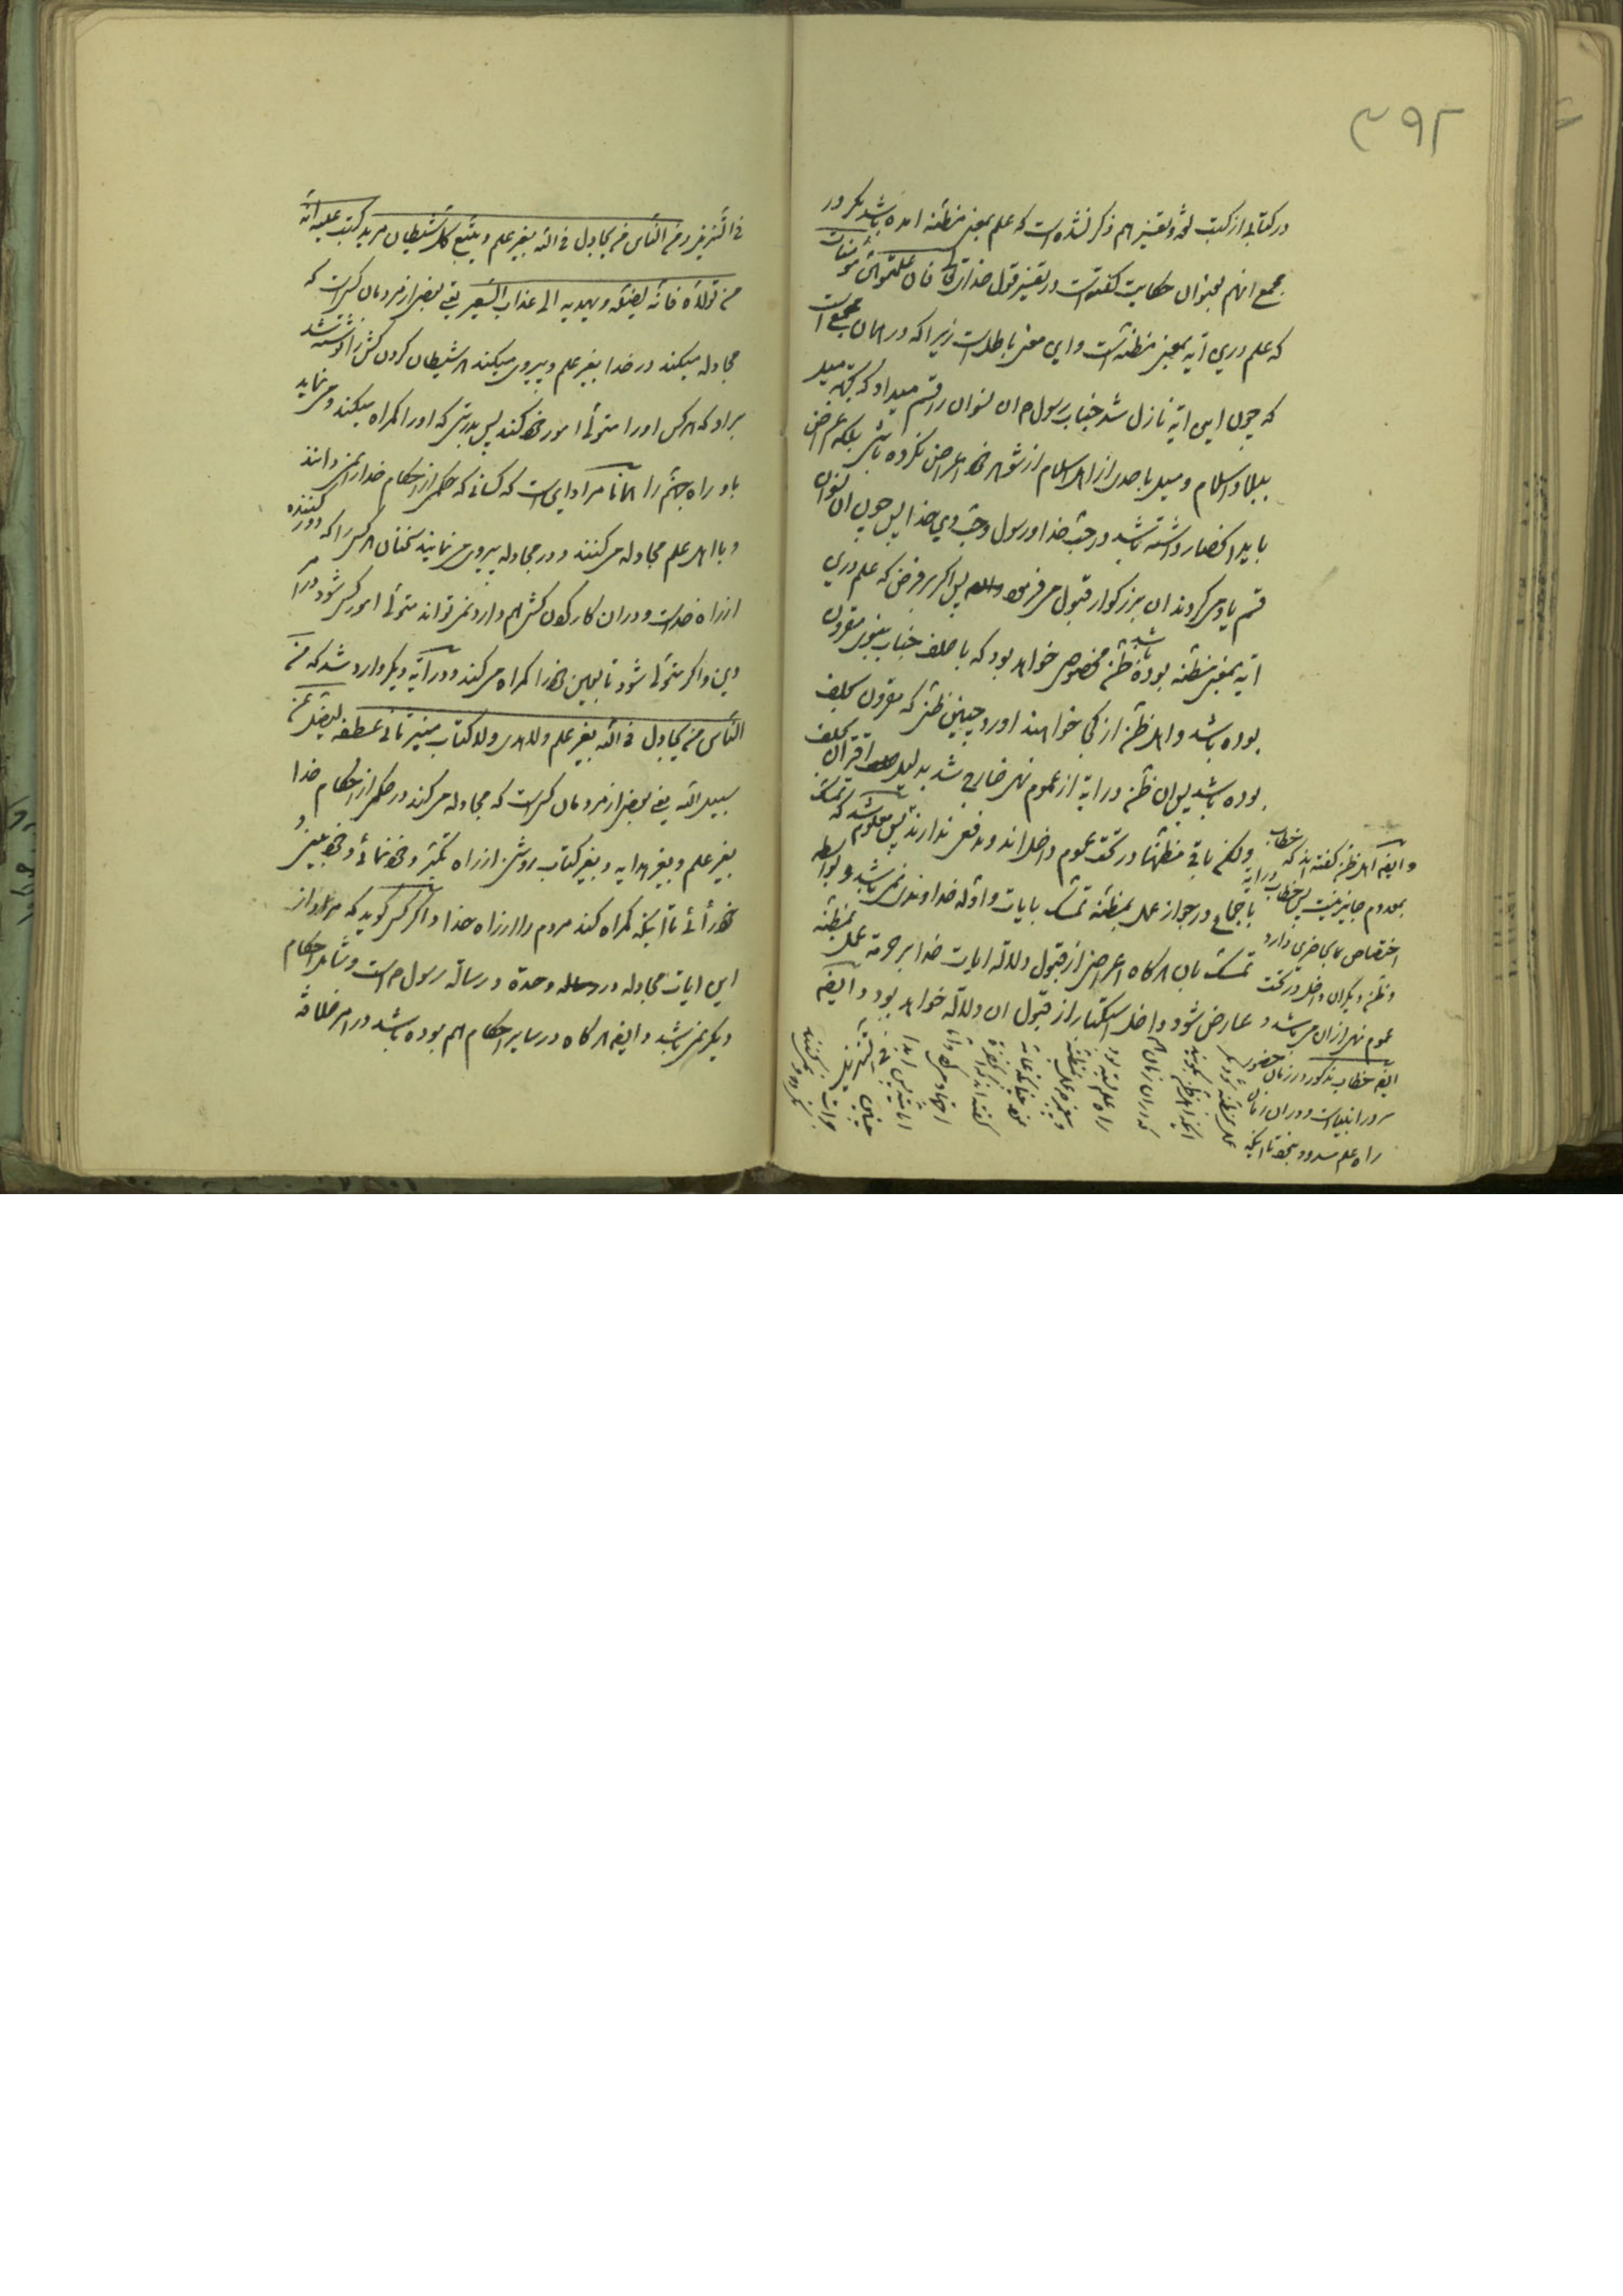 ۳۹۲
در کتابی از کتب لغة و تفسیر هم ذکر نشده است که علم بمعنی مظنه امده باشد مگر در
مجمع انهم بعنوان حکایت گفته است در تفسیر قول خدایتعالی فان علمتموهن مؤمنات
که علم درین آیه بمعنی مظنه است و این معنی باطل است زیرا که در همان مجمع است
که چون این ایه نازل شد جناب رسول ص ان نسوان را قسم میداد که بجهة میل
باسلام و میل باحدی از اهل اسلام از شوهر خود اعراض نکرده باشی بلکه غرض
باید انحصار داشته باشد در حب خدا و رسول و حب دین خدا پس چون ان نسوان
قسم یاد میکردند ان بزرگوار قبول میفرمود پس اگر بر فرض که علم درین
ایه بمعنی مظنه بوده باشد ظن مخصوص خواهد بود که با حلف جناب پیغمبر مقرون
بوده باشد و اهل ظن از کجا خواهند اورد چنین ظنی که مقرون بحلف
بوده باشد پس ان ظن در ایه از عموم نهی خارج شد بدلیل اقتران بحلف
ولکن باقی مظنها در تحت عموم داخل اند و مدفعی ندارند پس معلوم شد که تمسک
باجماع در جواز عمل بمظنه تمسک بایات و ادله خداوندی نمیباشد و بواسطه
تمسک بان هرگاه اعراض از قبول دلالة ایات خدا بر حرمة عمل بمظنه
عارض شود داخل استکبار از قبول ان دلالة خواهد بود و ایضا
و ایضا اهل ظن گفته اند که خطاب
بمعدوم جایز نیست پس خطاب در ایه
اختصاص بحاضرین دارد
و ظن دیگران داخل در تحت
عموم نهی از ان میباشد و
ایضا خطاب مذکور در زمان حضور
سرور انبیا است و در ان زمان
راه علم مسدود نبود تا اینکه
عمل بمظنه شود مگر
اینکه اهل ظن بگویند
که در ان زمان هم
راه علم بسته بود
فی التنزیل و من الناس من یجادل فی الله بغیر علم و یتبع کل شیطان مرید کتب علیه انه
من تولاه فانه یضله و یهدیه الی عذاب السعیر یعنی بعضی از مردمان کسی است که
مجادله میکند در خدا بغیر علم و پیروی میکند هر شیطان گردن کش را نوشته شد
بر او که هر کس او را متولی امور خود کند پس بدرستی که او را گمراه میکند و مینماید
باو راه جهنم را همانا مراد این است که کسانی که حکمی از احکام خدا را نمیدانند
و با اهل علم مجادله میکنند و در مجادله پیروی مینمایند سخنان هر کسی را که دور کننده
از راه خداست و در ان کار گردن کشی هم دارد نمیتواند متولی امور کسی شود در امر
دین و اگر متولی شود تابعین خود را گمراه میکند و در آیه دیگر وارد شد که من
الناس من یجادل فی الله بغیر علم ولا هدی ولا کتاب منیر ثانی عطفه لیضل عن
سبیل الله یعنی بعضی از مردمان کسی است که مجادله میکند در حکمی از احکام خدا
بغیر علم و بغیر هدایه و بغیر کتاب روشن از راه تکبر و خودنمائی و خودبینی و
خودرأئی تا اینکه گمراه کند مردم را از راه خدا و اگر کسی گوید که مراد از
این ایات مجادله در وحدة و رسالة رسول ص است و شامل احکام
دیگر نمیباشد و ایضا هرگاه در سایر احکام هم بوده باشد در امر خلافة